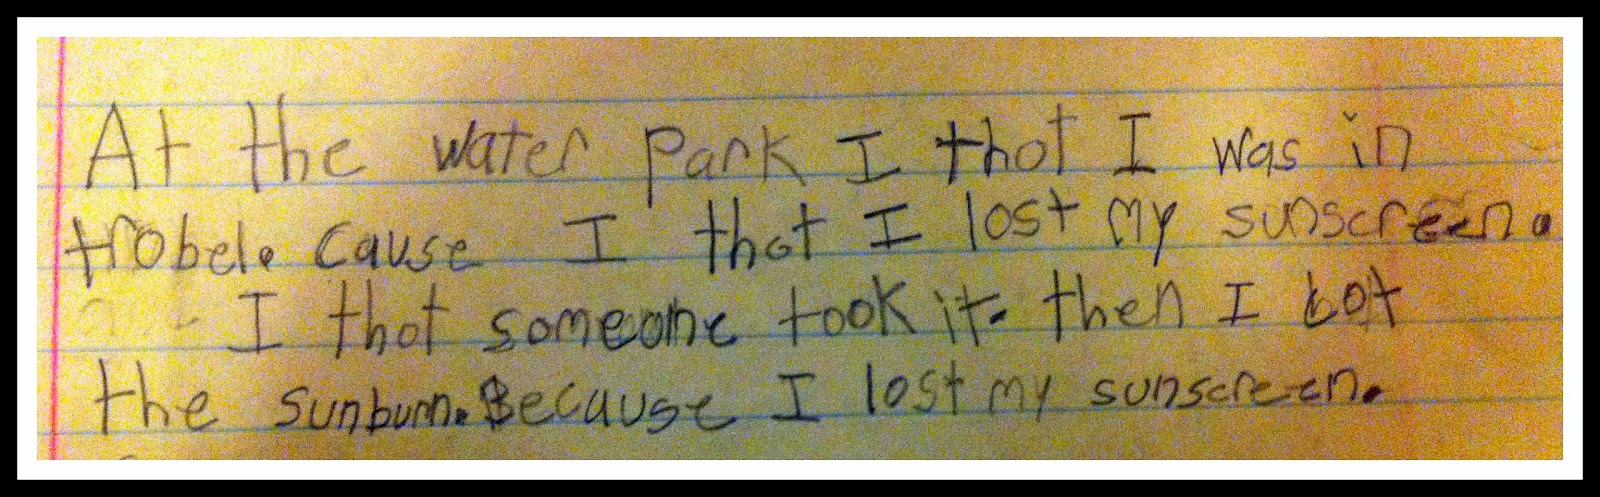 At the water Park I thot I was in
trobel. Cause I thot I lost my sunscreen.
I thot someone took it. then I bot
the sunburn. Because I lost my sunscreen.